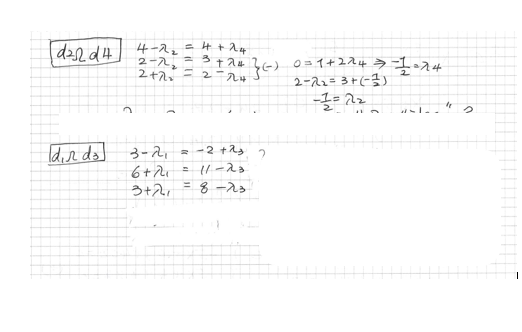 d₂∩d4
4-λ₂ = 4+λ4
2-λ₂ = 3+λ4
2+λ₂ = 2-λ4 } (-)
0=1+2λ4 ⇒ -1/2=λ4
2-λ₂=3+(-1/2)
-1/2=λ₂
d₁∩d₃
3-λ₁ = -2+λ₃
6+λ₁ = 11-λ₃
3+λ₁ = 8-λ₃